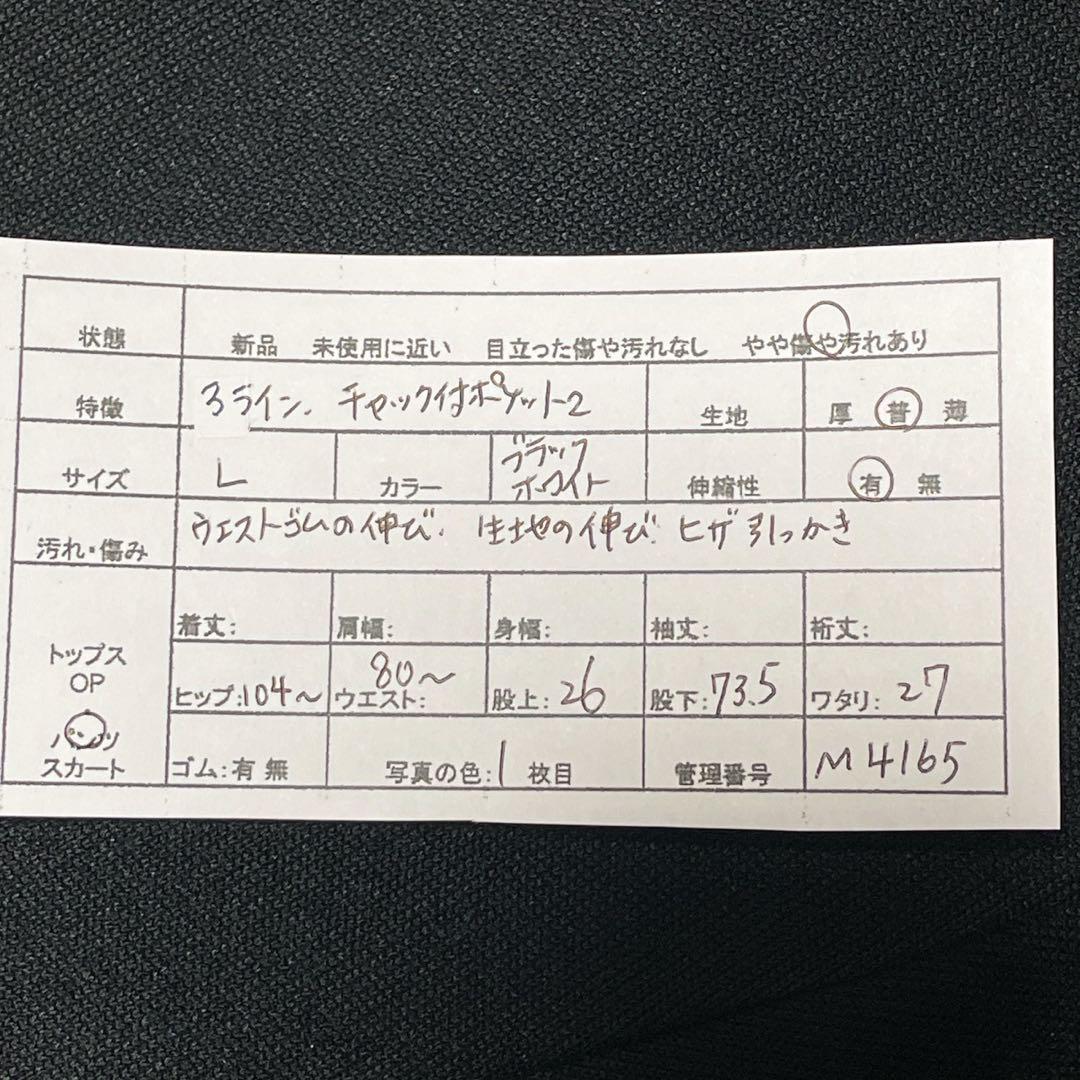 状態 新品 未使用に近い 目立った傷や汚れなし やや傷や汚れあり
特徴 3ライン、チャック付ポケット2 生地 厚 普 薄
サイズ L カラー ブラック ホワイト 伸縮性 有 無
汚れ・傷み ウエストゴムの伸び、生地の伸び、ヒザ引っかき
トップス OP パンツ スカート
着丈: 肩幅: 身幅: 袖丈: 裄丈:
ヒップ:104～ ウエスト:80～ 股上:26 股下:73.5 ワタリ:27
ゴム:有 無 写真の色:1枚目 管理番号 M4165